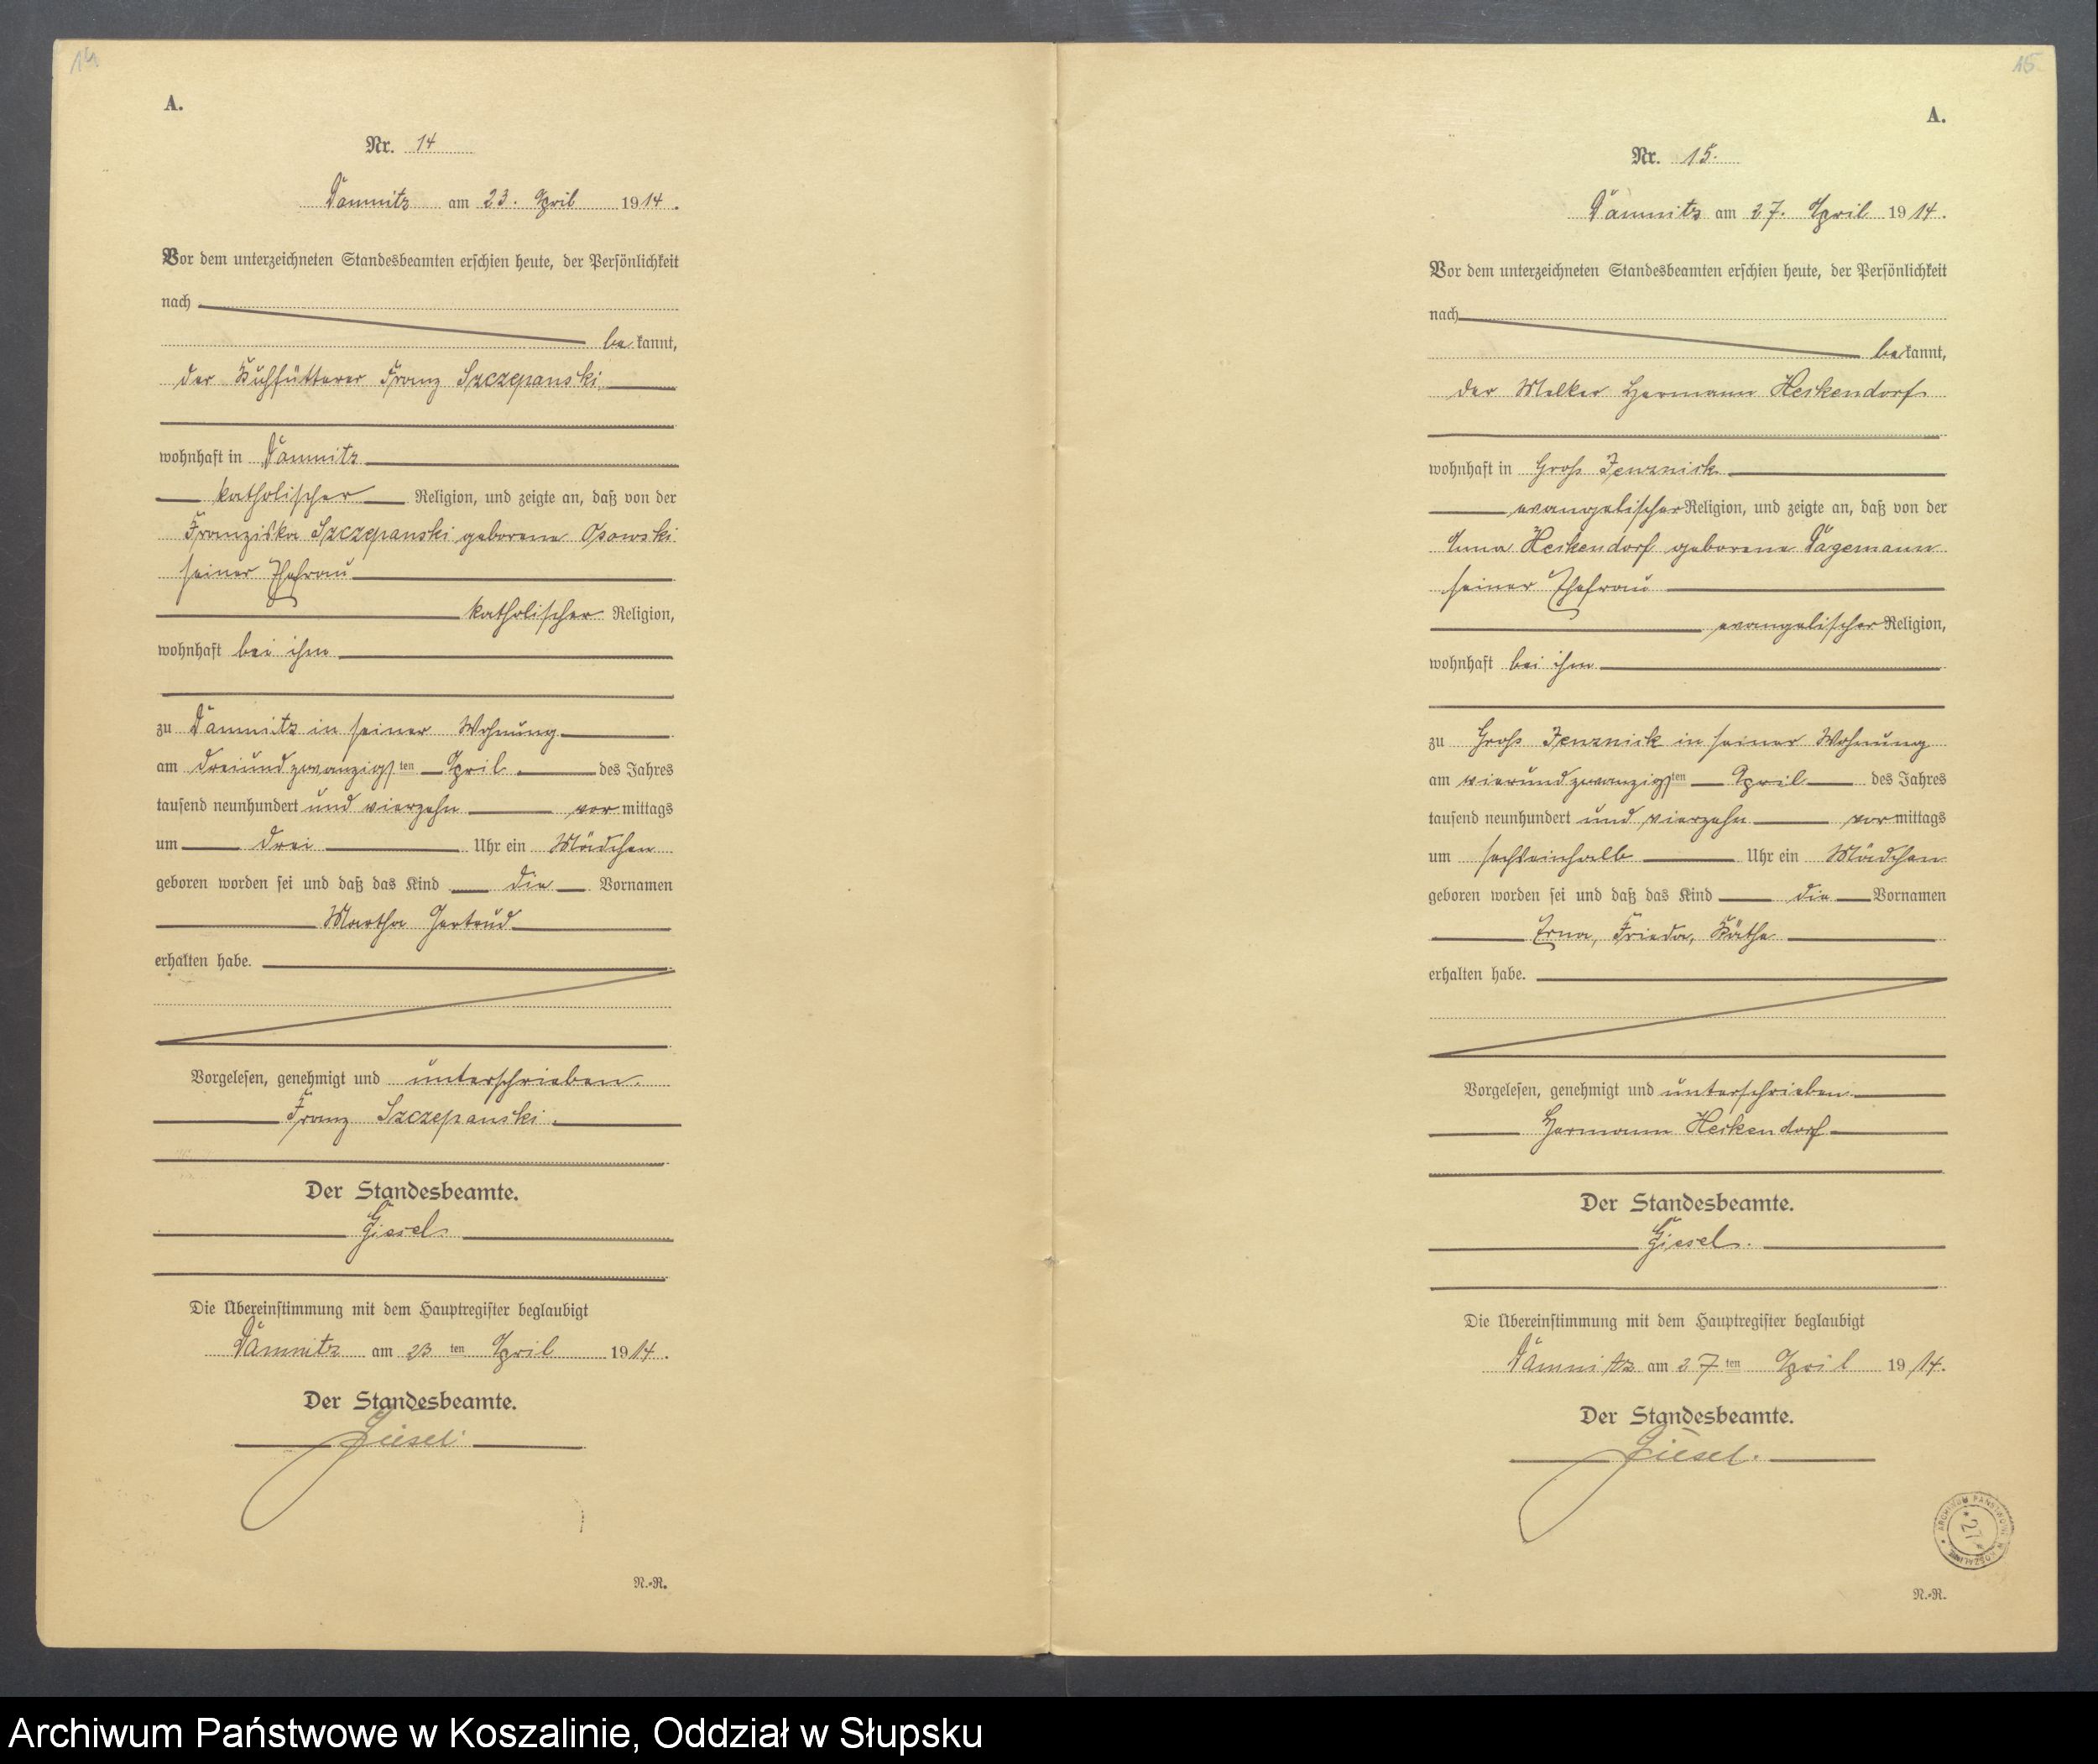 14
A.
Nr. 14
Damnitz am 23. April 1914.
Vor dem unterzeichneten Standesbeamten erschien heute, der Persönlichkeit
nach
bekannt,
der Kuhfütterer Franz Szczepanski
wohnhaft in Damnitz
katholischer Religion, und zeigte an, daß von der
Franziska Szczepanski geborene Osowski
seiner Ehefrau
katholischer Religion,
wohnhaft bei ihm
zu Damnitz in seiner Wohnung
am dreiundzwanzigsten April des Jahres
tausend neunhundert und vierzehn vormittags
um drei Uhr ein Mädchen
geboren worden sei und daß das Kind die Vornamen
Martha Gertrud
erhalten habe.
Vorgelesen, genehmigt und unterschrieben.
Franz Szczepanski.
Der Standesbeamte.
Giesel.
Die Übereinstimmung mit dem Hauptregister beglaubigt
Damnitz am 23ten April 1914.
Der Standesbeamte.
Giesel.
N.-R.
15
A.
Nr. 15.
Damnitz am 27. April 1914.
Vor dem unterzeichneten Standesbeamten erschien heute, der Persönlichkeit
nach
bekannt,
der Melker Hermann Heskendorf
wohnhaft in Groß Jenznick
evangelischer Religion, und zeigte an, daß von der
Anna Heskendorf geborene Dagemann
seiner Ehefrau
evangelischer Religion,
wohnhaft bei ihm
zu Groß Jenznick in seiner Wohnung
am vierundzwanzigsten April des Jahres
tausend neunhundert und vierzehn vormittags
um sechseinhalb Uhr ein Mädchen
geboren worden sei und daß das Kind die Vornamen
Erna, Frieda, Käthe
erhalten habe.
Vorgelesen, genehmigt und unterschrieben
Hermann Heskendorf
Der Standesbeamte.
Giesel.
Die Übereinstimmung mit dem Hauptregister beglaubigt
Damnitz am 27ten April 1914.
Der Standesbeamte.
Giesel.
ARCHIWUM PAŃSTWOWE W KOSZALINIE
27
N.-R.
Archiwum Państwowe w Koszalinie, Oddział w Słupsku